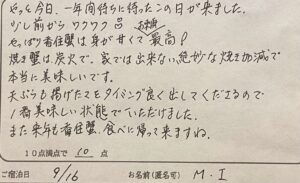 やっと今日、一年間待ちに待ったこの日が来ました。
少し前からワクワク
やっぱり香住蟹は身が甘くて最高!
焼き蟹は、炭火で。家では出来ない絶妙な焼き加減で
本当に美味しいです。
天ぷらも揚げたてをタイミング良く出してくださるので
1番美味しい状態でいただけました。
また来年も香住蟹、食べに帰って来ますね。
10点満点で 10 点
ご宿泊日 9/16 お名前(匿名可) M・I